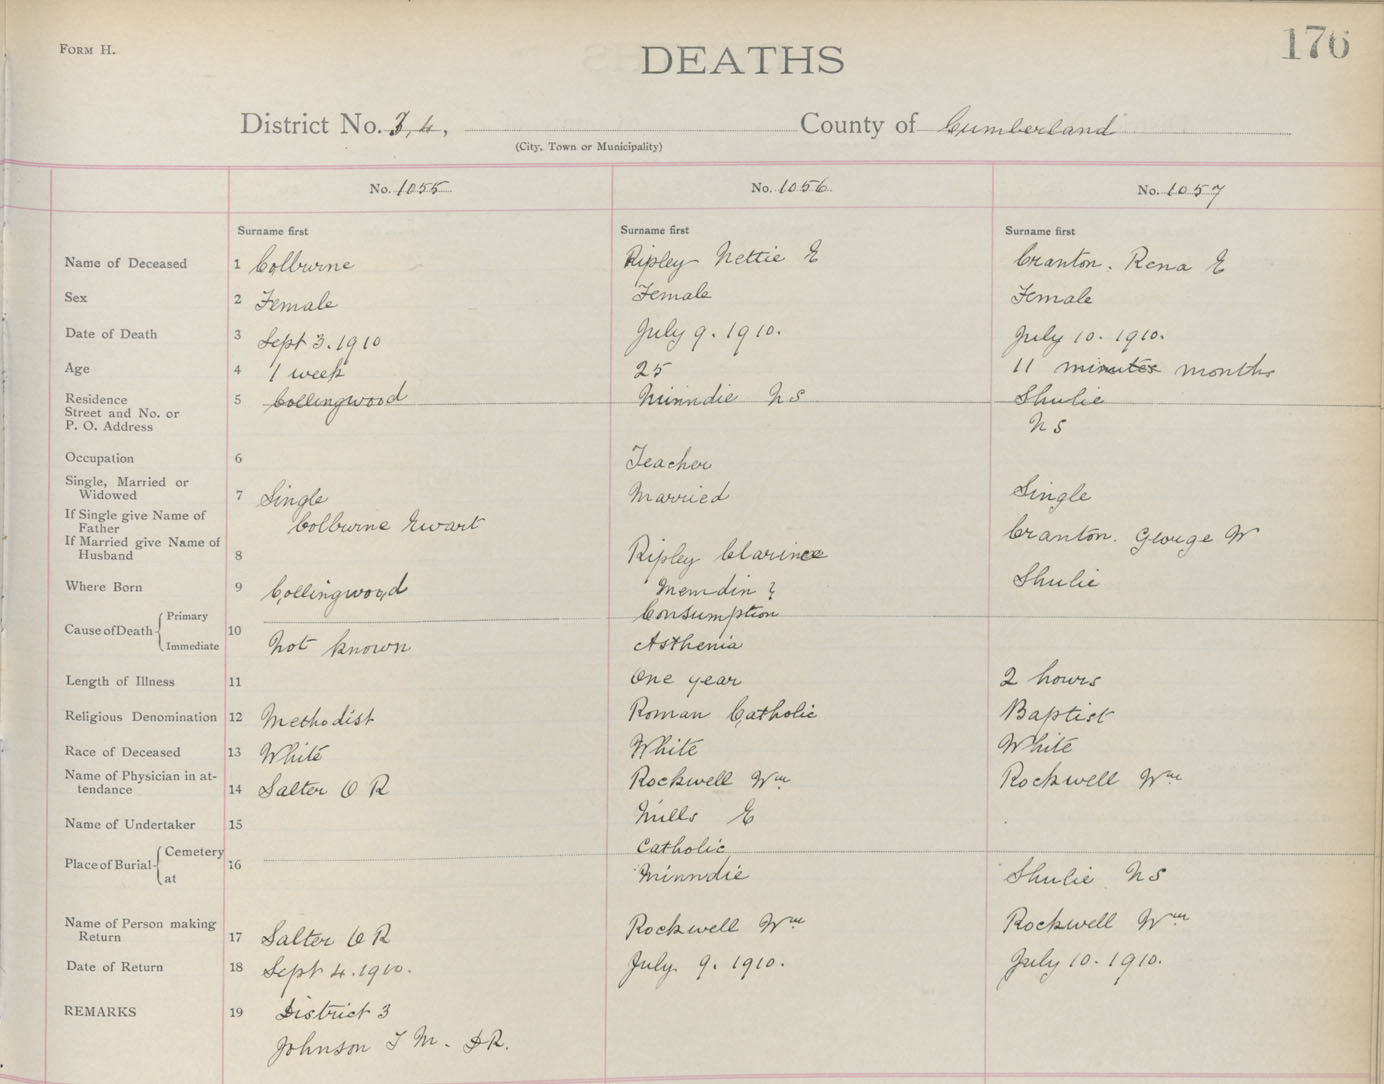 FORM H.
DEATHS
176
District No. 3, 4, County of Cumberland
(City, Town or Municipality)
No. 1055 No. 1056 No. 1057
Surname first Surname first Surname first
Name of Deceased 1 Colburne Ripley Nettie E Cranton. Rena E
Sex 2 Female Female Female
Date of Death 3 Sept 3. 1910 July 9. 1910. July 10. 1910.
Age 4 1 week 25 11 minutes months
Residence 5 Collingwood Minndie NS Shulie
Street and No. or
P. O. Address NS
Occupation 6 Teacher
Single, Married or
Widowed 7 Single Married Single
If Single give Name of
Father Colburne Ewart Cranton. George W
If Married give Name of
Husband 8 Ripley Clarince
Where Born 9 Collingwood Memdin ? Shulie
Cause of Death Primary 10 Consumption
Immediate Not known Asthenia
Length of Illness 11 One year 2 hours
Religious Denomination 12 Methodist Roman Catholic Baptist
Race of Deceased 13 White White White
Name of Physician in at-
tendance 14 Salter O R Rockwell Wm. Rockwell Wm.
Name of Undertaker 15 Mills E
Place of Burial Cemetery 16 Catholic
at Minndie Shulie NS
Name of Person making
Return 17 Salter O R Rockwell Wm. Rockwell Wm.
Date of Return 18 Sept 4. 1910. July. 9. 1910. July 10. 1910.
REMARKS 19 District 3
Johnson T M. D R.